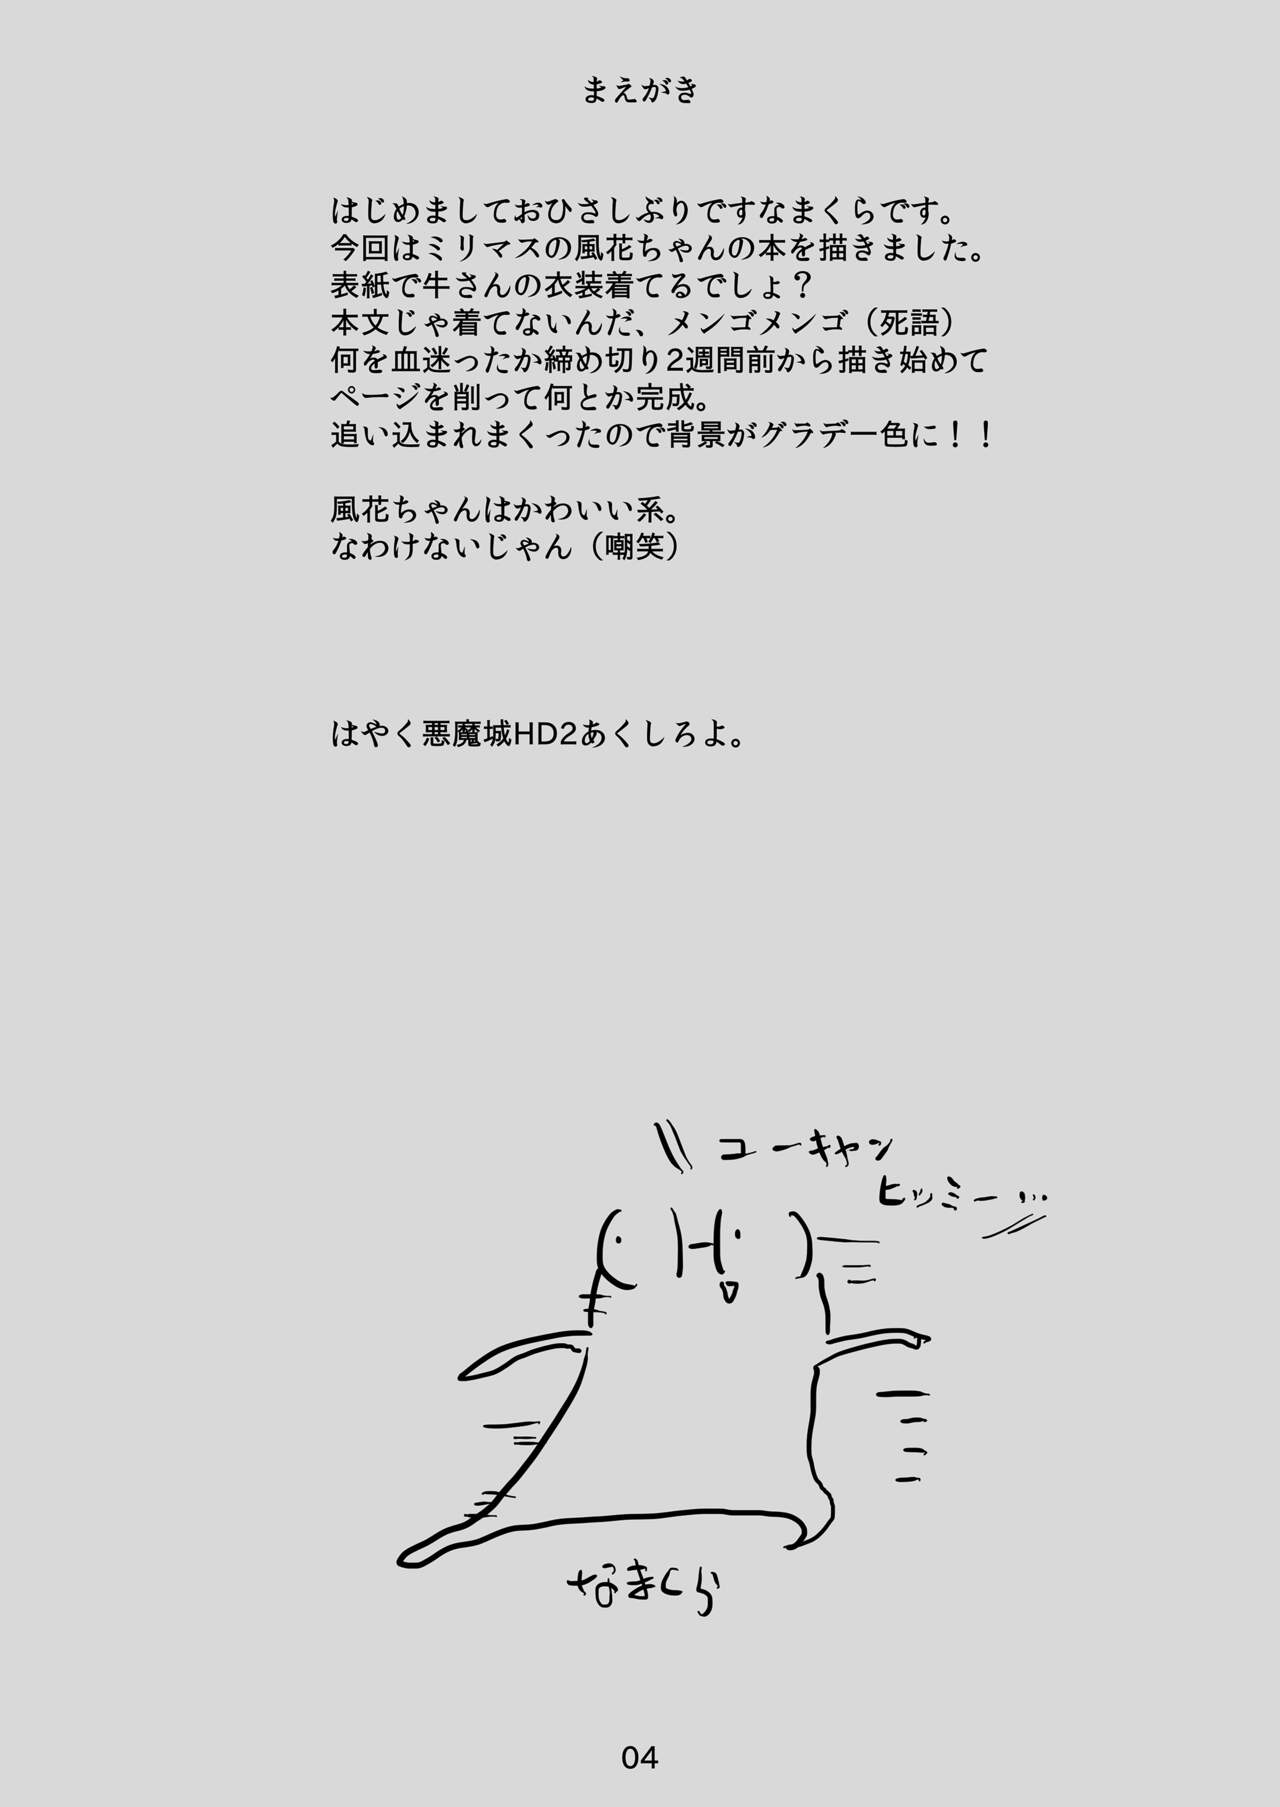 まえがき
はじめましておひさしぶりですなまくらです。
今回はミリマスの風花ちゃんの本を描きました。
表紙で牛さんの衣装着てるでしょ？
本文じゃ着てないんだ、メンゴメンゴ（死語）
何を血迷ったか締め切り2週間前から描き始めて
ページを削って何とか完成。
追い込まれまくったので背景がグラデ一色に！！
風花ちゃんはかわいい系。
なわけないじゃん（嘲笑）
はやく悪魔城HD2あくしろよ。
ユーキャン
ヒッミー…
なまくら
04